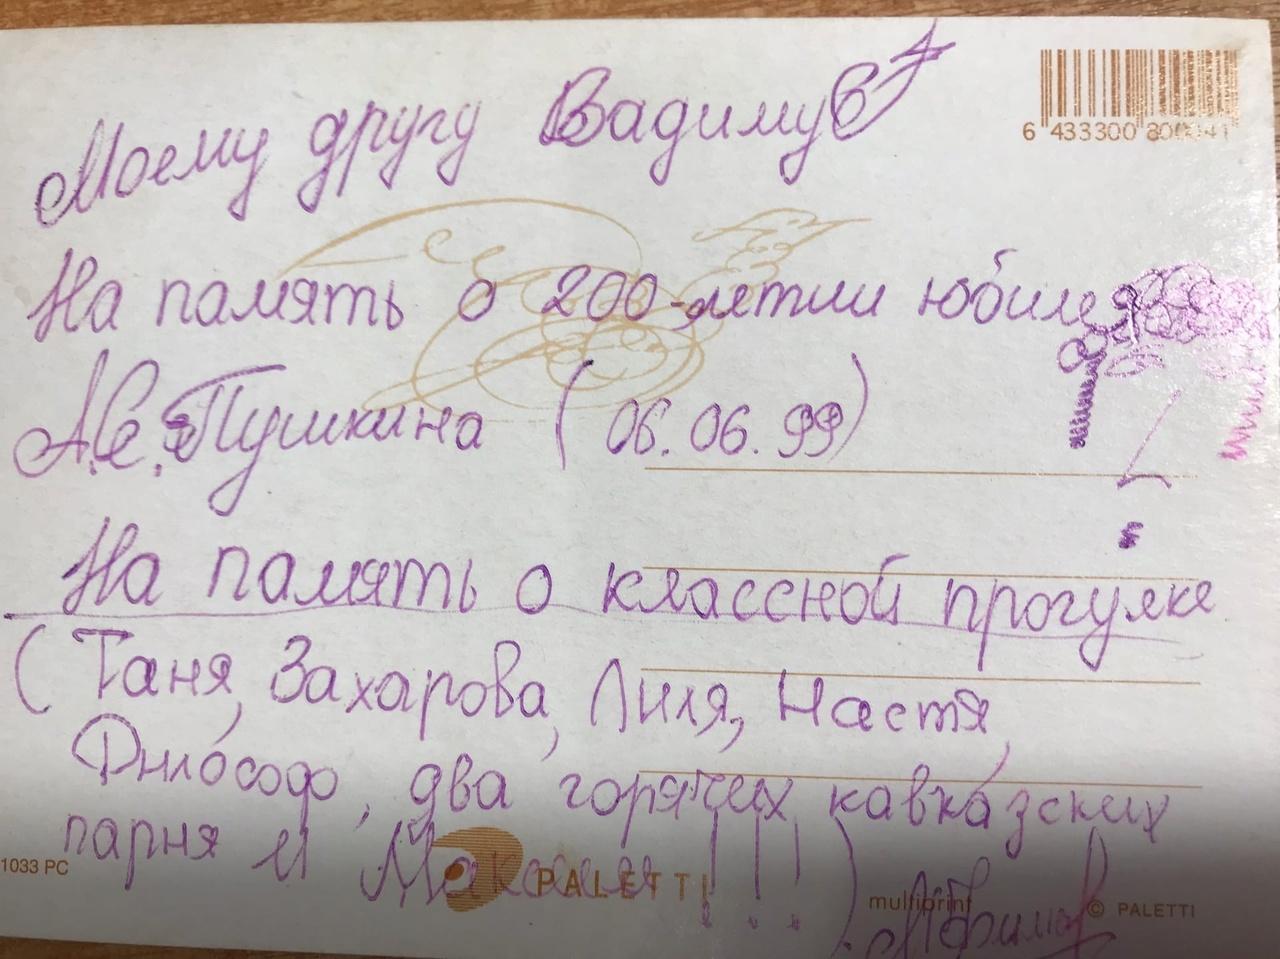 Моему другу Вадиму
6 433300 800041
На память о 200-летии юбилея
А.С. Пушкина (06.06.99)
На память о классной прогулке
(Таня, Захарова, Лиля, Настя,
Философ, два горячих кавказских
парня и Максим!!!)
1033 PC
PALETTI
multiprint
© PALETTI